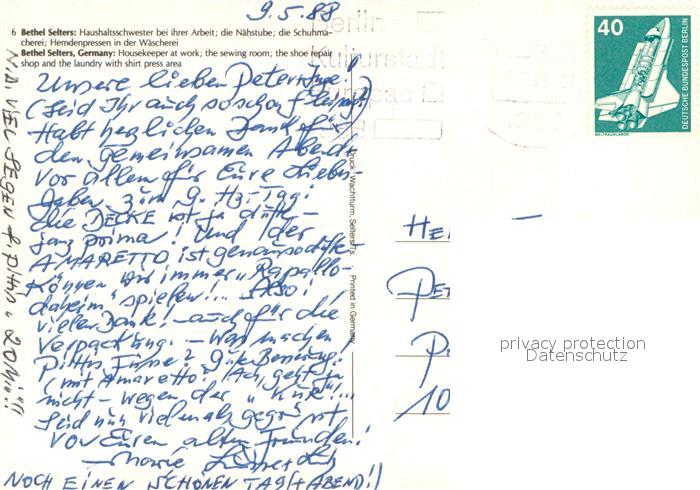 9.5.88
6 Bethel Selters: Haushaltsschwester bei ihrer Arbeit; die Nähstube; die Schuhma-
cherei; Hemdenpressen in der Wäscherei
Bethel Selters, Germany: Housekeeper at work; the sewing room; the shoe repair
shop and the laundry with shirt press area
Unsere lieben Peters
(Seid Ihr auch so schon fleissig?
Habt herzlichen Dank für
den gemeinsamen Abend
vor allem für Eure Lieben
Gaben zum 9. Hz.-Tag!
die DECKE ist ja dufte-
ganz prima! Und der
AMARETTO ist genauso dufte
Können wir immer "Rapallo-
daheim" spielen!... Also!
vielen Dank! - auch für die
Verpackung. - Was machen
Pittis Füsse? Gute Besserung!
(mit Amaretto? Ach, geht ja
nicht - wegen der "Kur"!...
Seid nun vielmals gegrüsst
von Euren alten Freunden!
NOCH EINEN SCHÖNEN TAG (+ ABEND!)
VIEL SEGEN f. PITTIS
Druck: Wachtturm, Selters/Ts.
Printed in Germany
Berlin -
Kulturstadt
Europas
40
DEUTSCHE BUNDESPOST BERLIN
WELTRAUMLABOR
HE
PET
P
10
privacy protection
Datenschutz